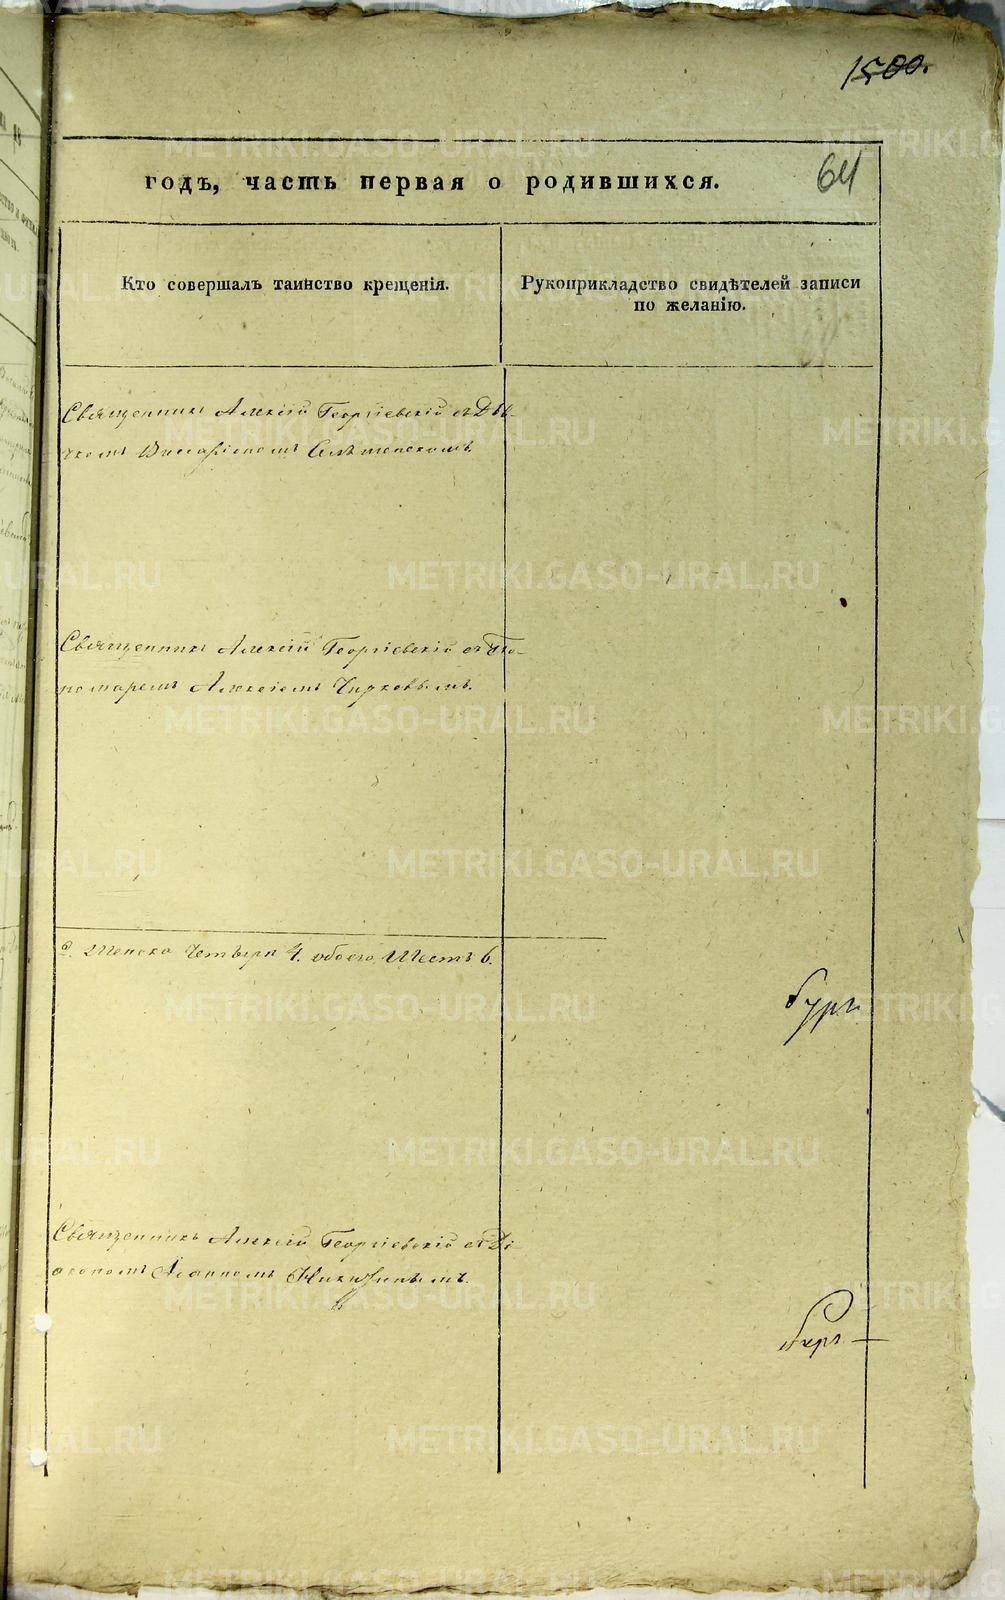 1500.
годъ, часть первая о родившихся.
64
Кто совершалъ таинство крещенія.
Рукоприкладство свидѣтелей записи
по желанію.
Священникъ Алексій Георгіевскій съ Дья-
комъ Виссаріономъ
Священникъ Алексій Георгіевскій съ По-
номаремъ Алексіемъ Чирковымъ.
Женска Четыри 4. обоего Шесть 6.
Священникъ Алексій Георгіевскій съ Ді-
акономъ Іоанномъ Никитинымъ.
METRIKI.GASO-URAL.RU